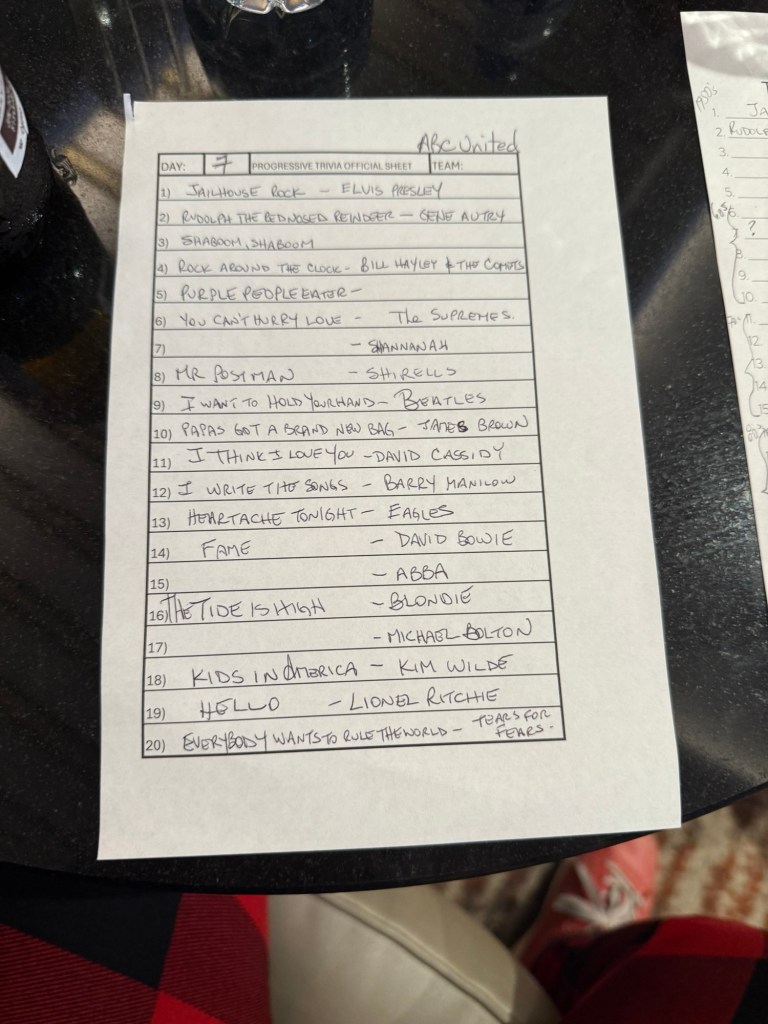 ABC United
DAY: 7 PROGRESSIVE TRIVIA OFFICIAL SHEET TEAM:
1) JAILHOUSE ROCK - ELVIS PRESLEY
2) RUDOLPH THE REDNOSED REINDEER - GENE AUTRY
3) SHABOOM, SHABOOM
4) ROCK AROUND THE CLOCK - BILL HAYLEY & THE COMETS
5) PURPLE PEOPLE EATER -
6) YOU CAN'T HURRY LOVE - The SUPREMES.
7) - SHANNANAH
8) MR POSTMAN - SHIRELLS
9) I WANT TO HOLD YOUR HAND - BEATLES
10) PAPAS GOT A BRAND NEW BAG - JAMES BROWN
11) I THINK I LOVE YOU - DAVID CASSIDY
12) I WRITE THE SONGS - BARRY MANILOW
13) HEARTACHE TONIGHT - EAGLES
14) FAME - DAVID BOWIE
15) - ABBA
16) THE TIDE IS HIGH - BLONDIE
17) - MICHAEL BOLTON
18) KIDS IN AMERICA - KIM WILDE
19) HELLO - LIONEL RITCHIE
20) EVERYBODY WANTS TO RULE THE WORLD - TEARS FOR FEARS.
1950's
1. JA
2. RUDOLP
3.
4.
5.
6.
?
8.
9.
10.
11.
12.
13.
14
15